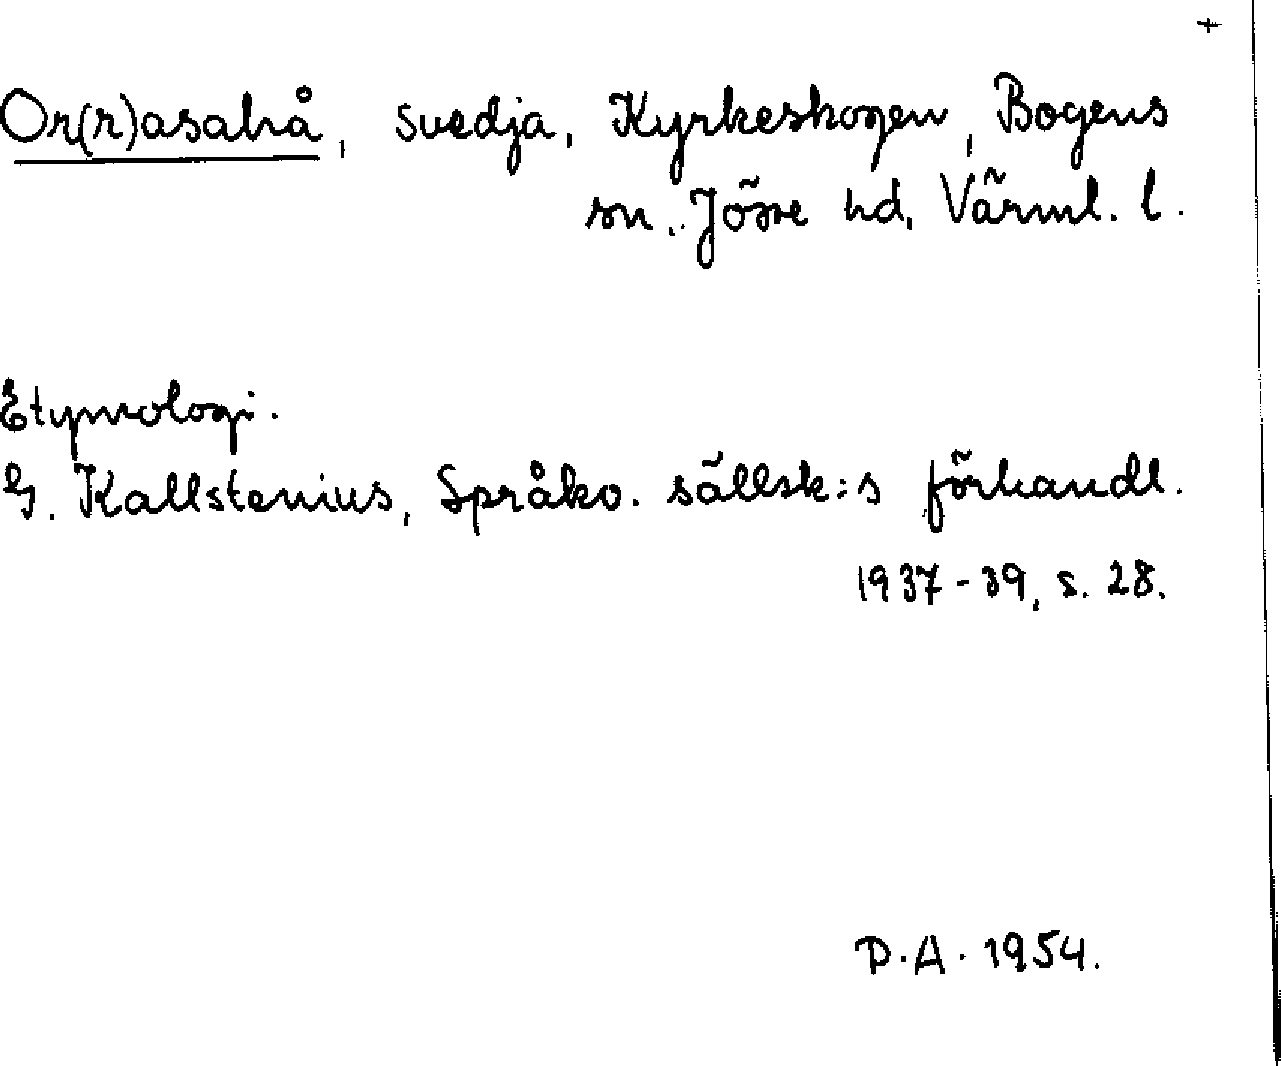 +
Or(r)asahå, svedja, Kyrkeskogen, Bogens
sn, Jösse hd, Värml. l.
Etymologi.
G. Kallstenius, Språkv. sällsk:s förhandl.
1937-39, s. 28.
P.A. 1954.